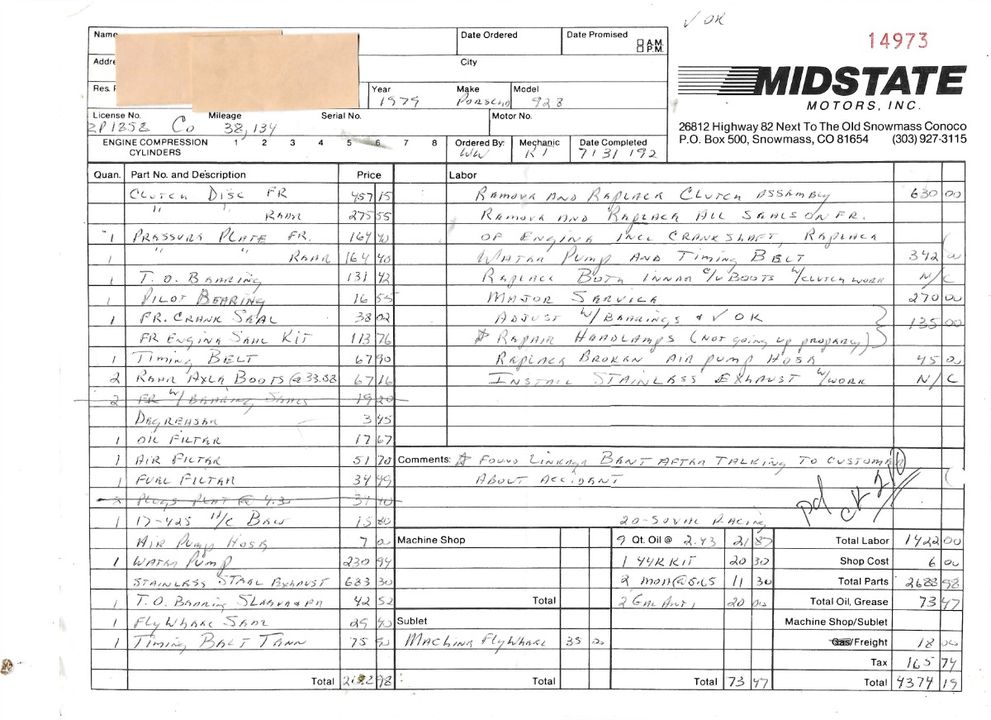 ✓ OK
14973
Name
Date Ordered
Date Promised
A.M.
P.M.
Addre
City
Res. P
Year 1979
Make Porsche
Model 928
MIDSTATE
MOTORS, INC.
26812 Highway 82 Next To The Old Snowmass Conoco
P.O. Box 500, Snowmass, CO 81654 (303) 927-3115
License No. Co
Mileage 38,134
Serial No.
Motor No.
ENGINE COMPRESSION CYLINDERS 1 2 3 4 5 6 7 8
Ordered By: WW
Mechanic RT
Date Completed 7/31/92
Quan. Part No. and Description Price Labor
Clutch Disc FR 457 15 Remove and Replace Clutch Assembly 630 00
" " Rear 275 55 Remove and Replace All Seals on FR.
1 Pressure Plate FR. 164 40 of Engine Incl Crankshaft, Replace
1 " " Rear 164 40 Water Pump and Timing Belt 342 00
1 T.O. Bearing 131 42 Replace Both Inner c/v Boots w/clutch work N/C
1 Pilot Bearing 16 55 Major Service 270 00
1 FR. Crank Seal 38 02 Adjust w/Bearings & ✓ OK
FR Engine Seal Kit 113 76 Repair Headlamps (Not going up properly) 135 00
1 Timing Belt 67 90 Replace Broken Air Pump Hose 45 00
2 Rear Axle Boots @ 33.58 67 16 Install Stainless Exhaust w/work N/C
2 FR w/Bearing Seals 19 20
Degreaser 3 45
1 Oil Filter 17 67
1 Air Filter 51 70 Comments: Found Linkage Bent After Talking To Customer
1 Fuel Filter 34 49 About Accident
Plugs Plat @ 4.30 34 40
pd ck
1 17-425 A/C Belt 15 80 20-50 Val Racing
Air Pump Hose 7 00 Machine Shop 9 Qt. Oil @ 2.43 21 87 Total Labor 1422 00
1 Water Pump 230 94 1 44K Kit 20 30 Shop Cost 6 00
Stainless Steel Exhaust 683 30 2 @ 5.65 11 30 Total Parts 2688 98
1 T.O. Bearing Sleeve 42 52 Total 2 Gal Anti 20 00 Total Oil, Grease 73 47
1 Flywheel Seal 29 40 Sublet Machine Shop/Sublet
1 Timing Belt Tenn 75 90 Machine Flywheel 35 00 Gas/Freight 18 00
Tax 165 74
Total Total Total 73 47 Total 4374 19